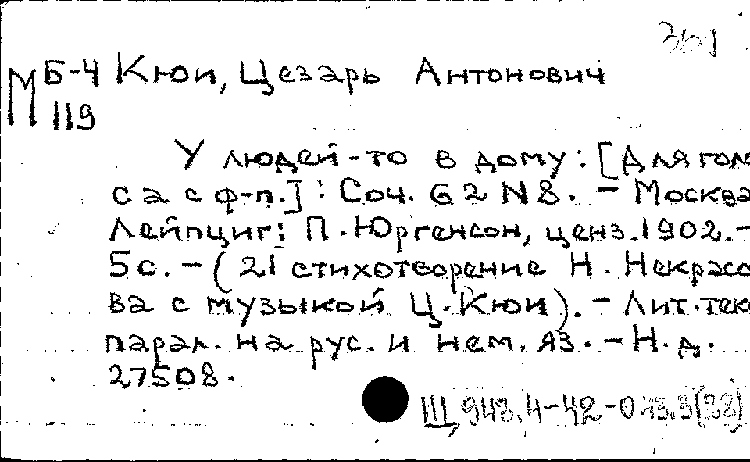 М Б-4 Кюи, Цезарь Антонович
119
У людей-то в дому: [Для голо
са с ф-п.]: Соч. 62 N 8. - Москва
Лейпциг: П. Юргенсон, ценз. 1902. -
5 с. - (21 стихотворение Н. Некрасо
ва с музыкой Ц. Кюи). - Лит. текс
парал. на рус. и нем. яз. - Н. д.
27508.
Щ 943.4-42-0